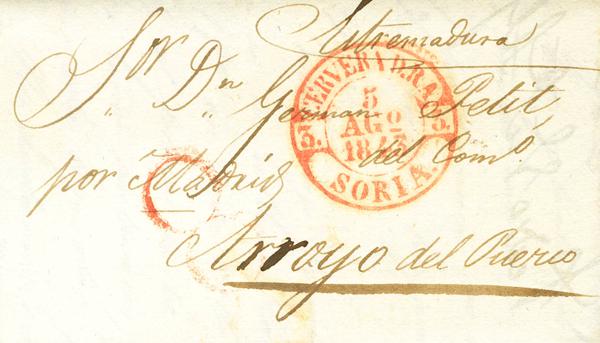 Estremadura
Sor Dn German Petit,
del Como.
por Madrid
Arroyo del Puerco
CERVERA D.R.A.
5
AGO
1845
3. 3.
SORIA.